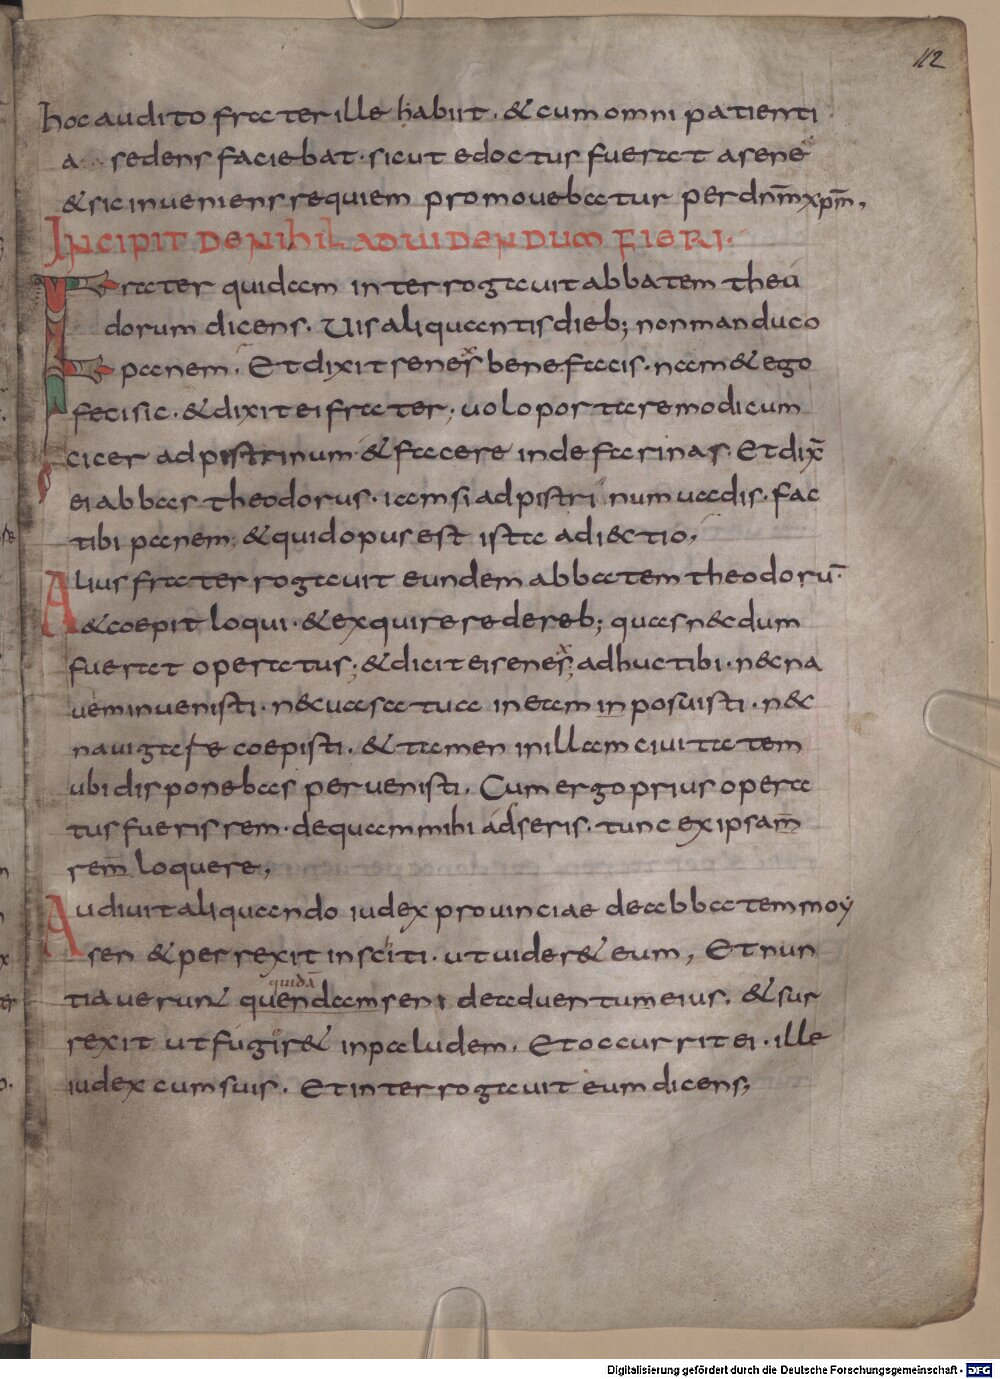 112
hoc audito frater ille habiit · & cum omni patienti
a sedens faciebat · sicut edoctus fuerat a sene
& sic inveniens requiem promovebatur per dnm̄ xpm̄,
INCIPIT DE NIHIL AD VIDENDUM FIERI·
Frater quidam interrogavit abbatem theo
dorum dicens · Vis aliquantis dieb; non manduco
panem · Et dixit senex benefacis · nam & ego
feci sic · & dixit ei frater; volo portare modicum
cicer ad pistrinum & facere inde farinas · Et dix̄
ei abbas theodorus · iam si ad pistrinum vadis · fac
tibi panem & quid opus est ista adiectio,
Alius frater rogavit eundem abbatem theodorū·
& coepit loqui · & exquirere de reb; quas n&dum
fuerat operatus; & dicit ei senex; adhuc tibi · n&na
vem invenisti · n& vasa tua in eam in posuisti · n&
navigare coepisti · & tamen in illam civitatem
ubi disponebas pervenisti. Cum ergo prius opera
tus fueris rem · de quam mihi adseris · tunc ex ipsam
rem̄ loquere,
Audivit aliquando iudex provinciae de abbatem moy
sen & perrexit in sciti · ut vider& eum, Et nun
quidā
tiaverun& quendam seni de adventum eius. & sur
rexit ut fugir& in paludem. Et occurrit ei · ille
iudex cum suis. Et interrogavit eum dicens;
Digitalisierung gefördert durch die Deutsche Forschungsgemeinschaft - DFG